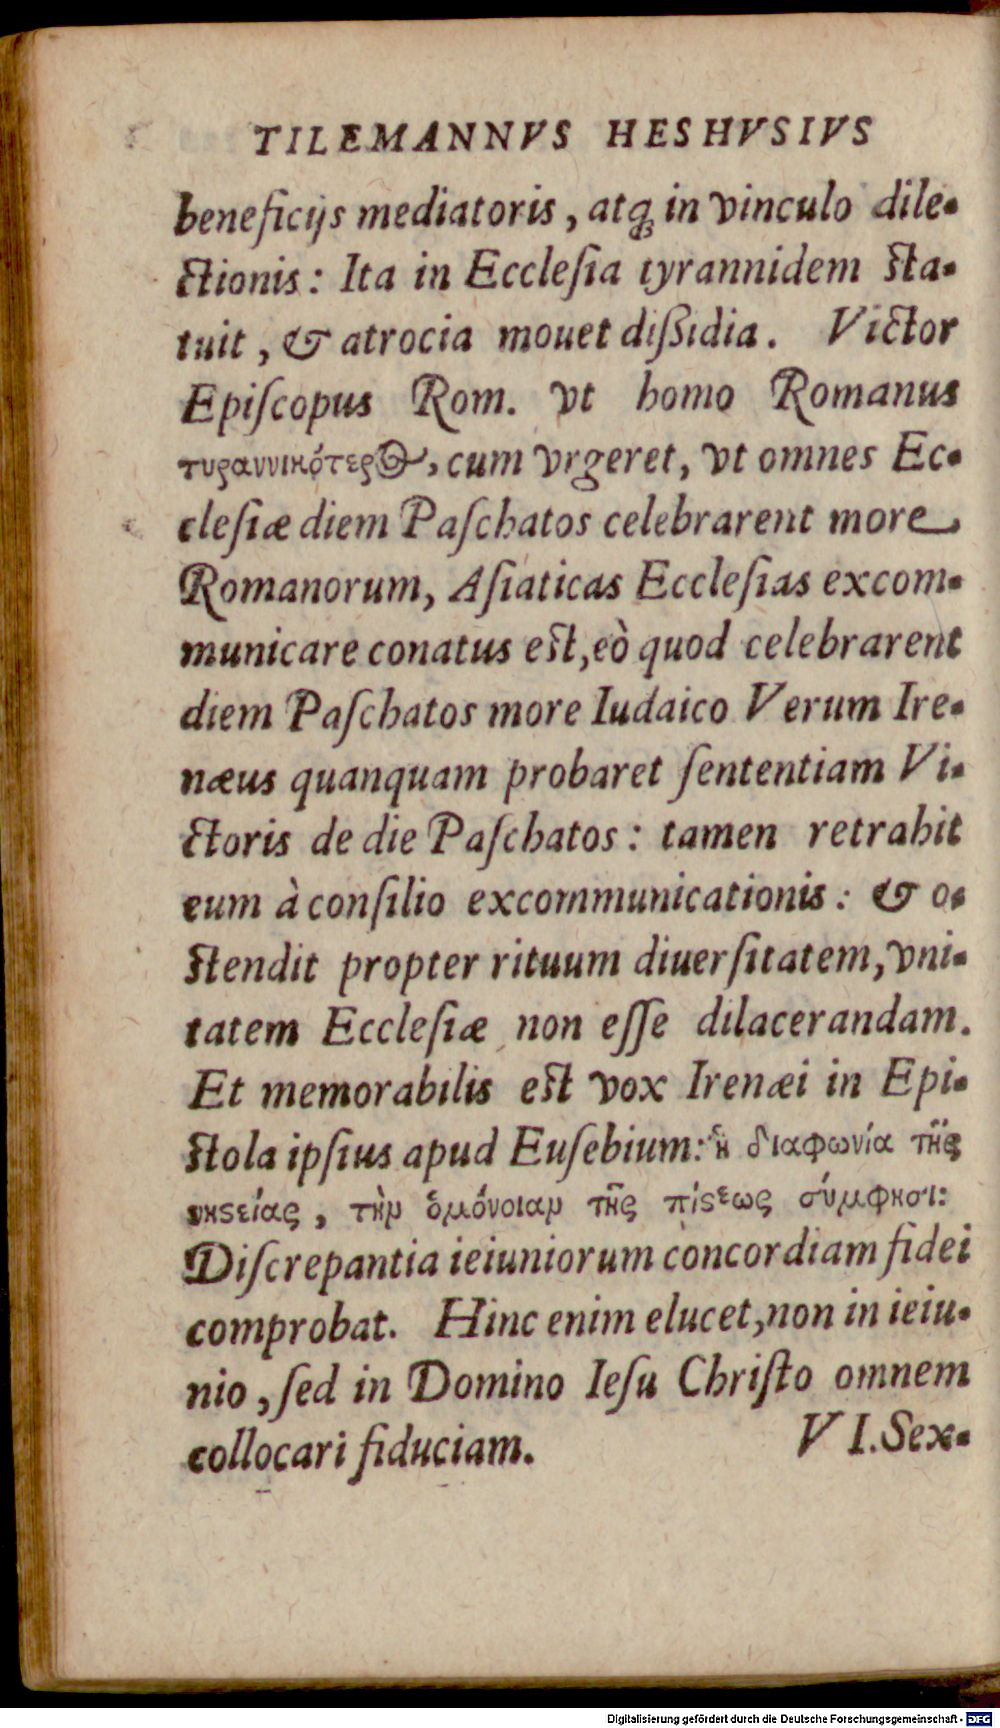 TILEMANNVS HESHVSIVS
beneficijs mediatoris, atq́; in vinculo dile-
ctionis: Ita in Ecclesia tyrannidem sta-
tuit, & atrocia mouet dißidia. Victor
Episcopus Rom. vt homo Romanus
τυραννικότερος, cum vrgeret, vt omnes Ec-
clesiæ diem Paschatos celebrarent more
Romanorum, Asiaticas Ecclesias excom-
municare conatus est, eò quod celebrarent
diem Paschatos more Iudaico Verum Ire-
næus quanquam probaret sententiam Vi-
ctoris de die Paschatos: tamen retrahit
eum à consilio excommunicationis: & o-
stendit propter rituum diuersitatem, vni-
tatem Ecclesiæ non esse dilacerandam.
Et memorabilis est vox Irenæi in Epi-
stola ipsius apud Eusebium: ἡ διαφωνία τῆς
νηςείας, τὴν ὁμόνοιαν τῆς πίςεως σύμφησι:
Discrepantia ieiuniorum concordiam fidei
comprobat. Hinc enim elucet, non in ieiu-
nio, sed in Domino Iesu Christo omnem
collocari fiduciam. VI. Sex-
Digitalisierung gefördert durch die Deutsche Forschungsgemeinschaft - DFG